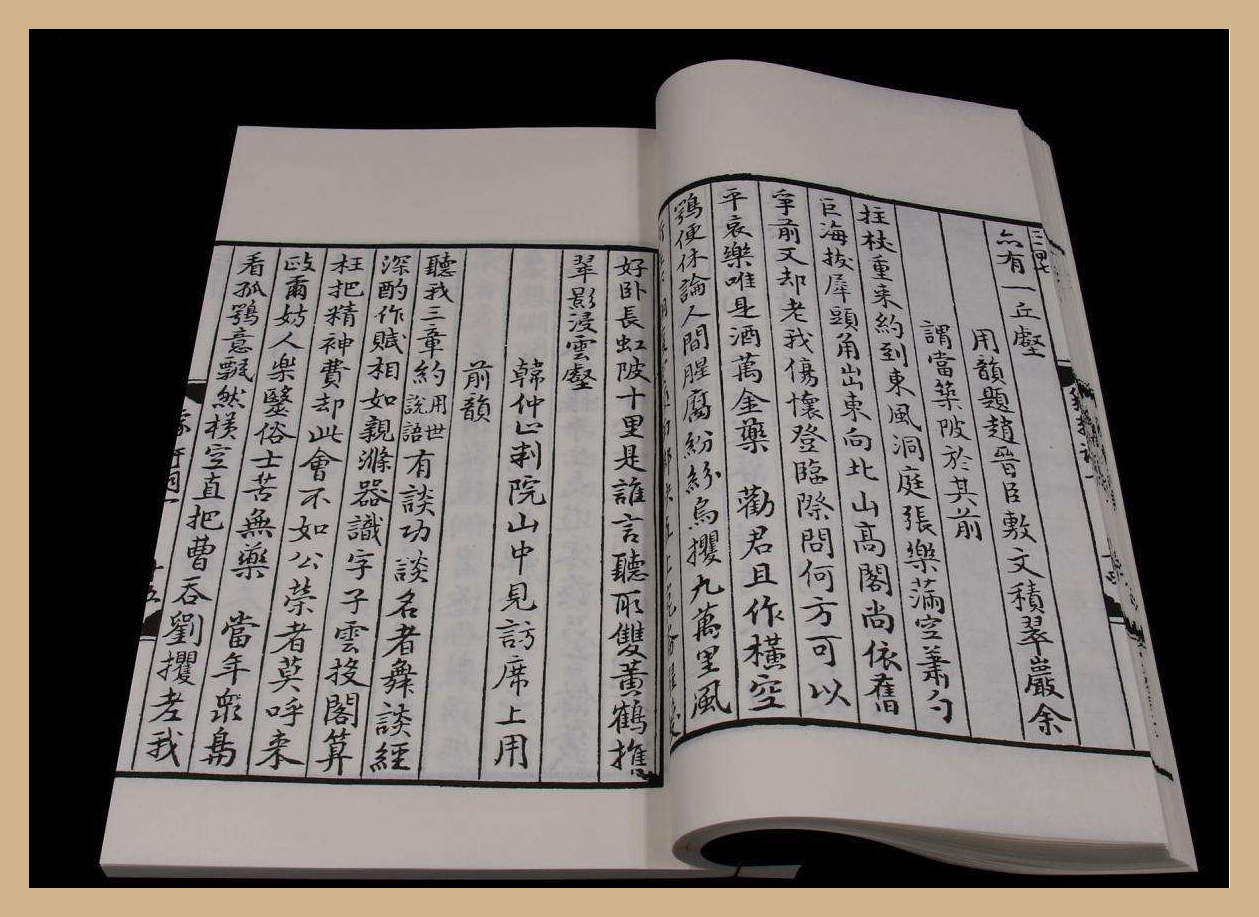 亦有一丘壑
用韻題趙晉臣敷文積翠巖余
謂當築陂於其前
拄杖重來約到東風洞庭張樂滿空簫勺
巨海拔犀頭角出東向北山高閣尚依舊
爭前又却老我傷懷登臨際問何方可以
平哀樂唯是酒萬金藥　勸君且作橫空
鶚便休論人間腥腐紛紛烏攫九萬里風
好卧長虹陂十里是誰言聽取雙黃鶴推
翠影浸雲壑
韓仲止判院山中見訪席上用
前韻
聽我三章約用世說語有談功談名者舞談經
深酌作賦相如親滌器識字子雲投閣算
枉把精神費却此會不如公榮者莫呼来
政爾妨人樂毉俗士苦無藥　當年衆鳥
看孤鶚意飄然橫空直把曹吞劉攫老我
十五